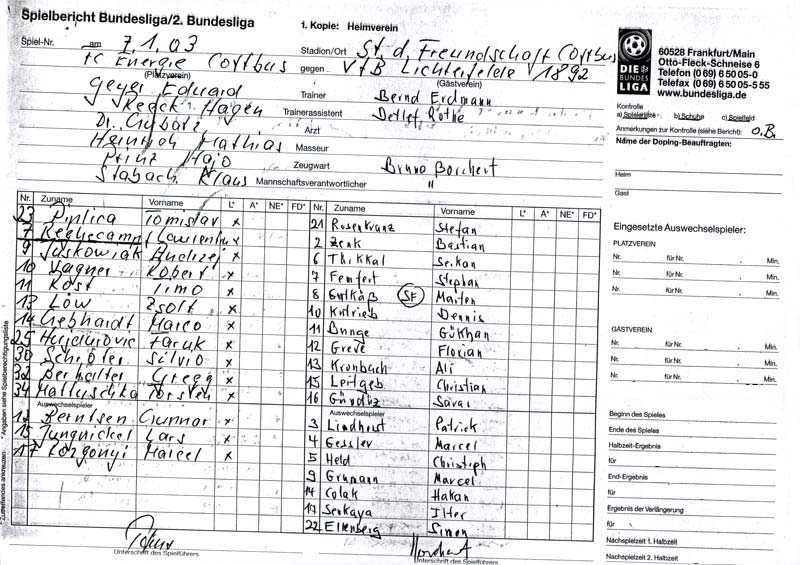 Spielbericht Bundesliga/2. Bundesliga
1. Kopie: Heimverein
Spiel-Nr. am 7.1.03 Stadion/Ort St. d. Freundschaft Cottbus
FC Energie Cottbus gegen VfB Lichterfelde 1892
(Platzverein) (Gastverein)
Geyer Eduard Trainer Bernd Erdmann
Reeck Hagen Trainerassistent Detlef Rothe
Dr. Arzt
Heinrich Mathias Masseur
Prinz Hajo Zeugwart Bruno Borchert
Stabach Klaus Mannschaftsverantwortlicher "
DIE BUNDES LIGA
60528 Frankfurt/Main
Otto-Fleck-Schneise 6
Telefon (0 69) 6 50 05-0
Telefax (0 69) 6 50 05-5 55
www.bundesliga.de
Kontrolle
a) Spielerliste b) Schuhe c) Spielfeld
Anmerkungen zur Kontrolle (siehe Bericht): o.B.
Name der Doping-Beauftragten:
Heim
Gast
Nr. Zuname Vorname L* A* NE* FD*
23 Piplica Tomislav x
7 Reghecampf Laurentiu x
9 Juskowiak Andrzej x
10 Vagner Robert x
11 Rost Timo x
13 Löw Zsolt x
14 Gebhardt Marco x
25 Hujdurovic Faruk x
30 Schröter Silvio x
32 Berhalter Gregg x
34 Mattuschka Torsten x
Auswechselspieler
12 Berntsen Gunnar x
15 Jungnickel Lars x
17 Rozgonyi Marcel x
Nr. Zuname Vorname L* A* NE* FD*
21 Rosenkranz Stefan
2 Zenk Bastian
6 Thikkal Serkan
7 Femfert Stephan
8 Gutkäß SF Marten
10 Kutrieb Dennis
11 Bunge Gökhan
12 Greve Florian
13 Kronbach Ali
15 Leitgeb Christian
16 Gündüz Savas
Auswechselspieler
3 Lindhorst Patrick
4 Gessler Marcel
5 Held Christoph
9 Grumann Marcel
14 Colak Hakan
17 Senkaya Ilter
22 Ellenberg Simon
Unterschrift des Spielführers
Unterschrift des Spielführers
Eingesetzte Auswechselspieler:
PLATZVEREIN
Nr. für Nr. , Min.
Nr. für Nr. , Min.
Nr. für Nr. , Min.
GASTVEREIN
Nr. für Nr. , Min.
Nr. für Nr. , Min.
Nr. für Nr. , Min.
Beginn des Spieles
Ende des Spieles
Halbzeit-Ergebnis
für
End-Ergebnis
für
Ergebnis der Verlängerung
für
Nachspielzeit 1. Halbzeit
Nachspielzeit 2. Halbzeit
* Zutreffendes ankreuzen. * Angaben siehe Spielberechtigungsliste